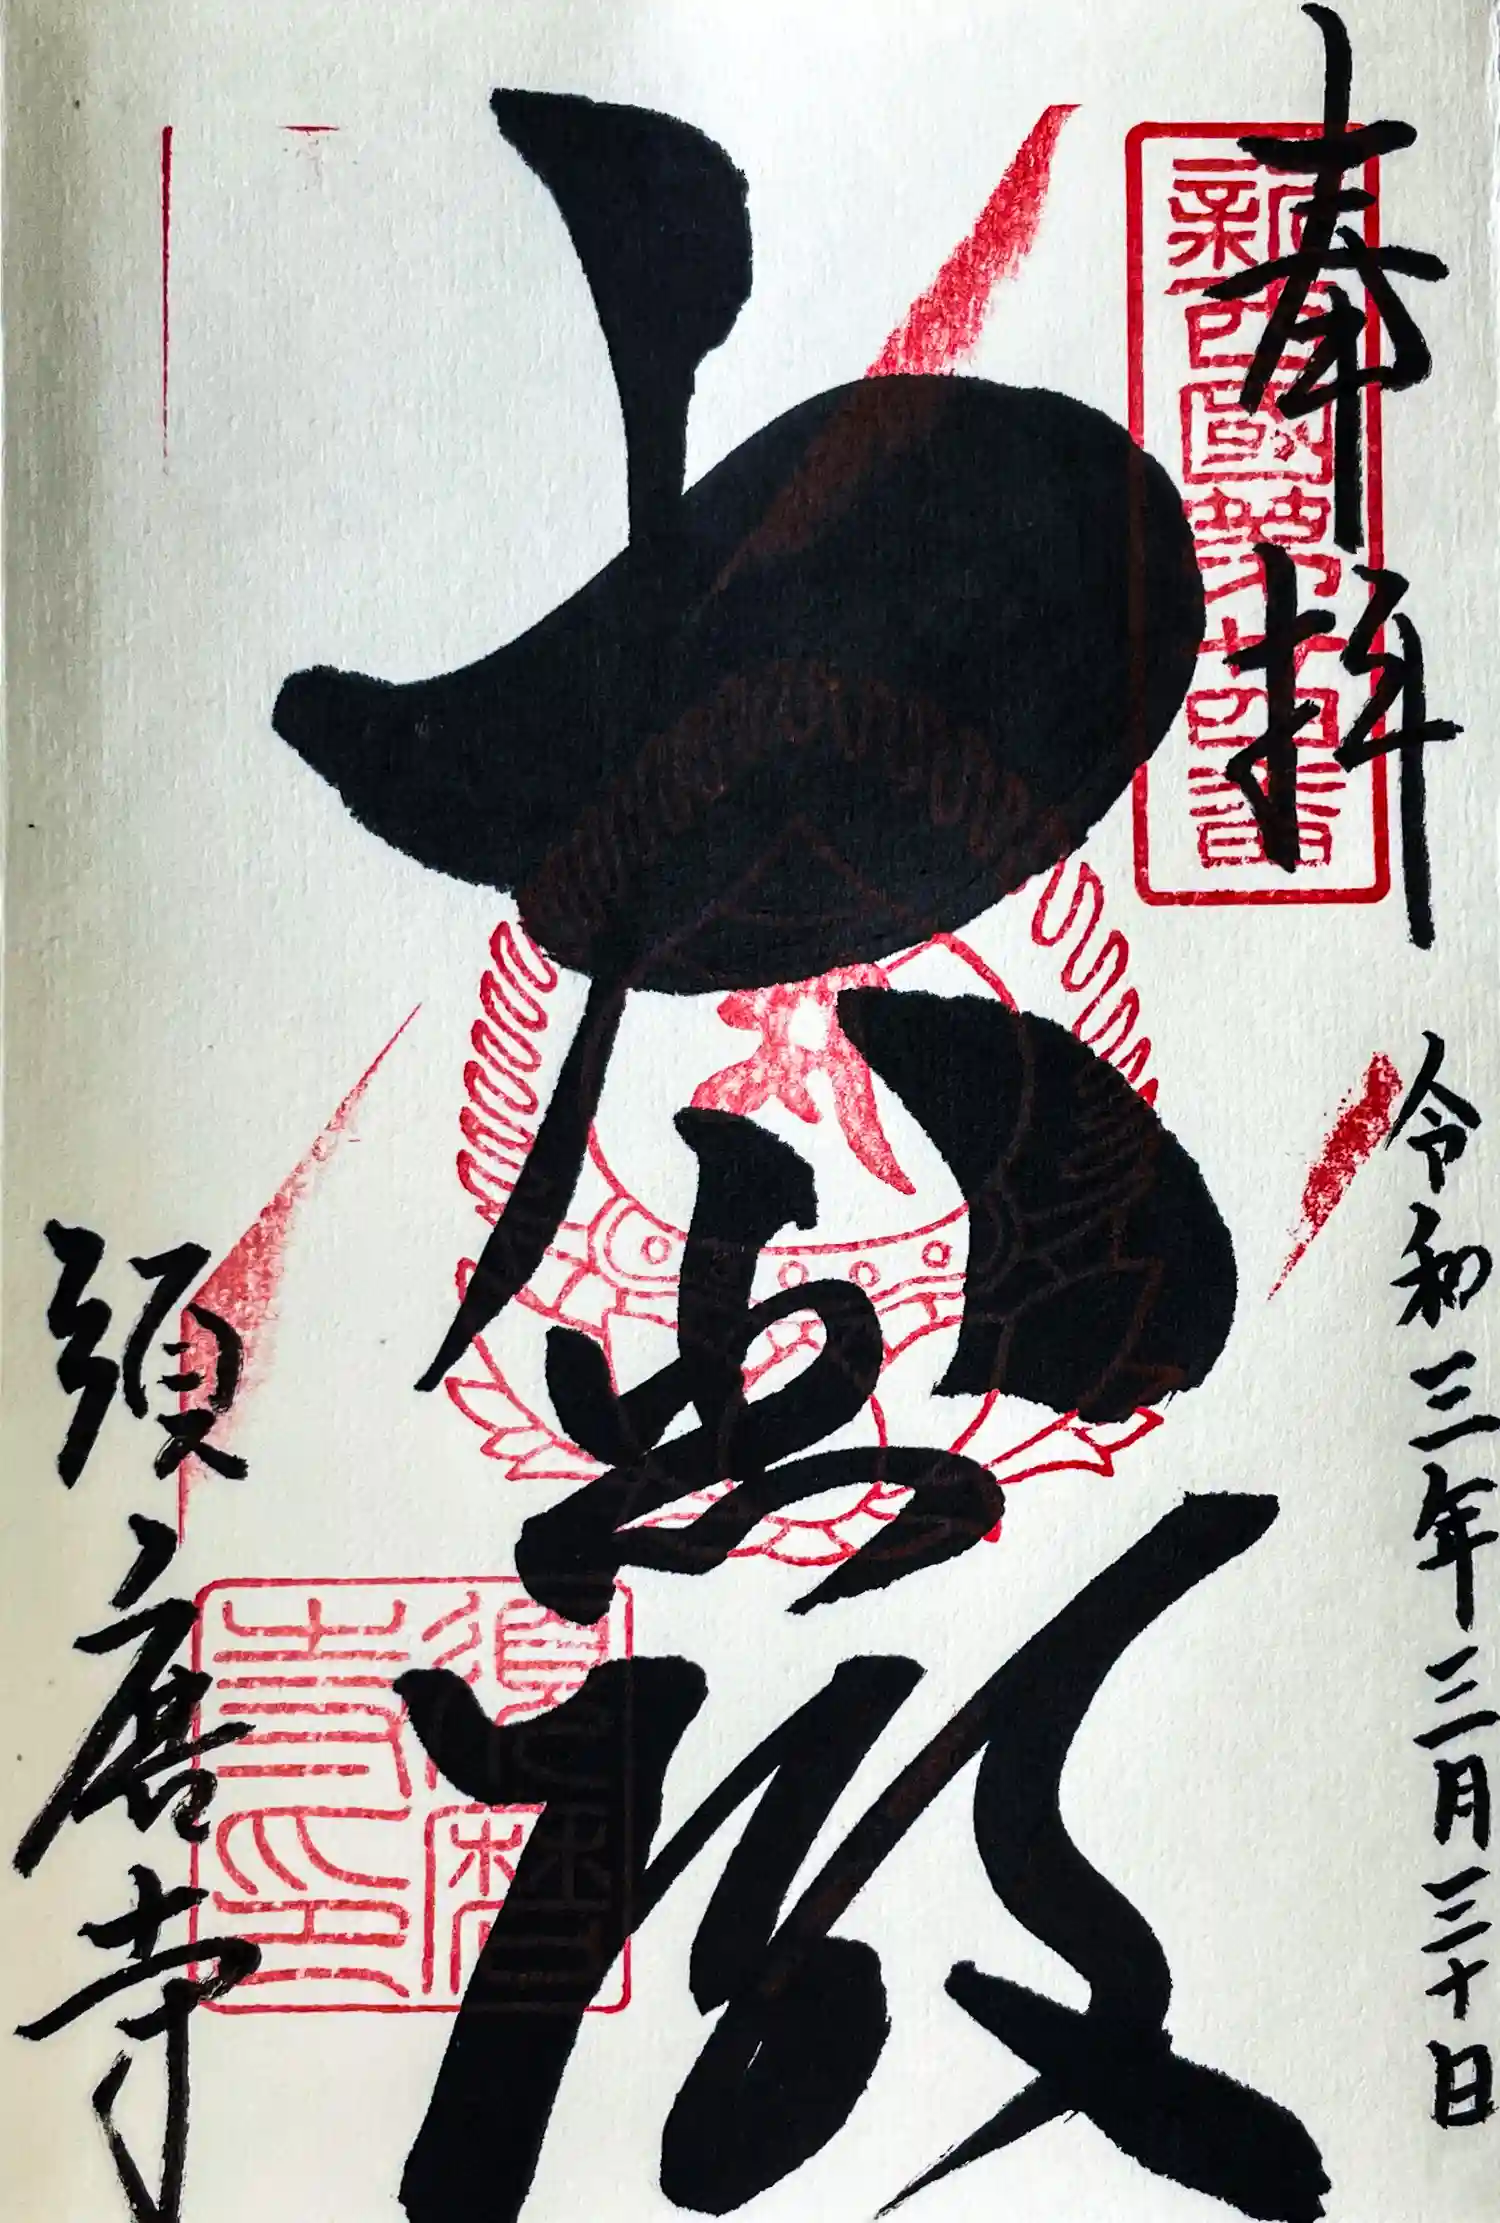 奉拝
令和三年三月三十日
新西國第廿四番
大悲殿
須磨寺
須磨寺印